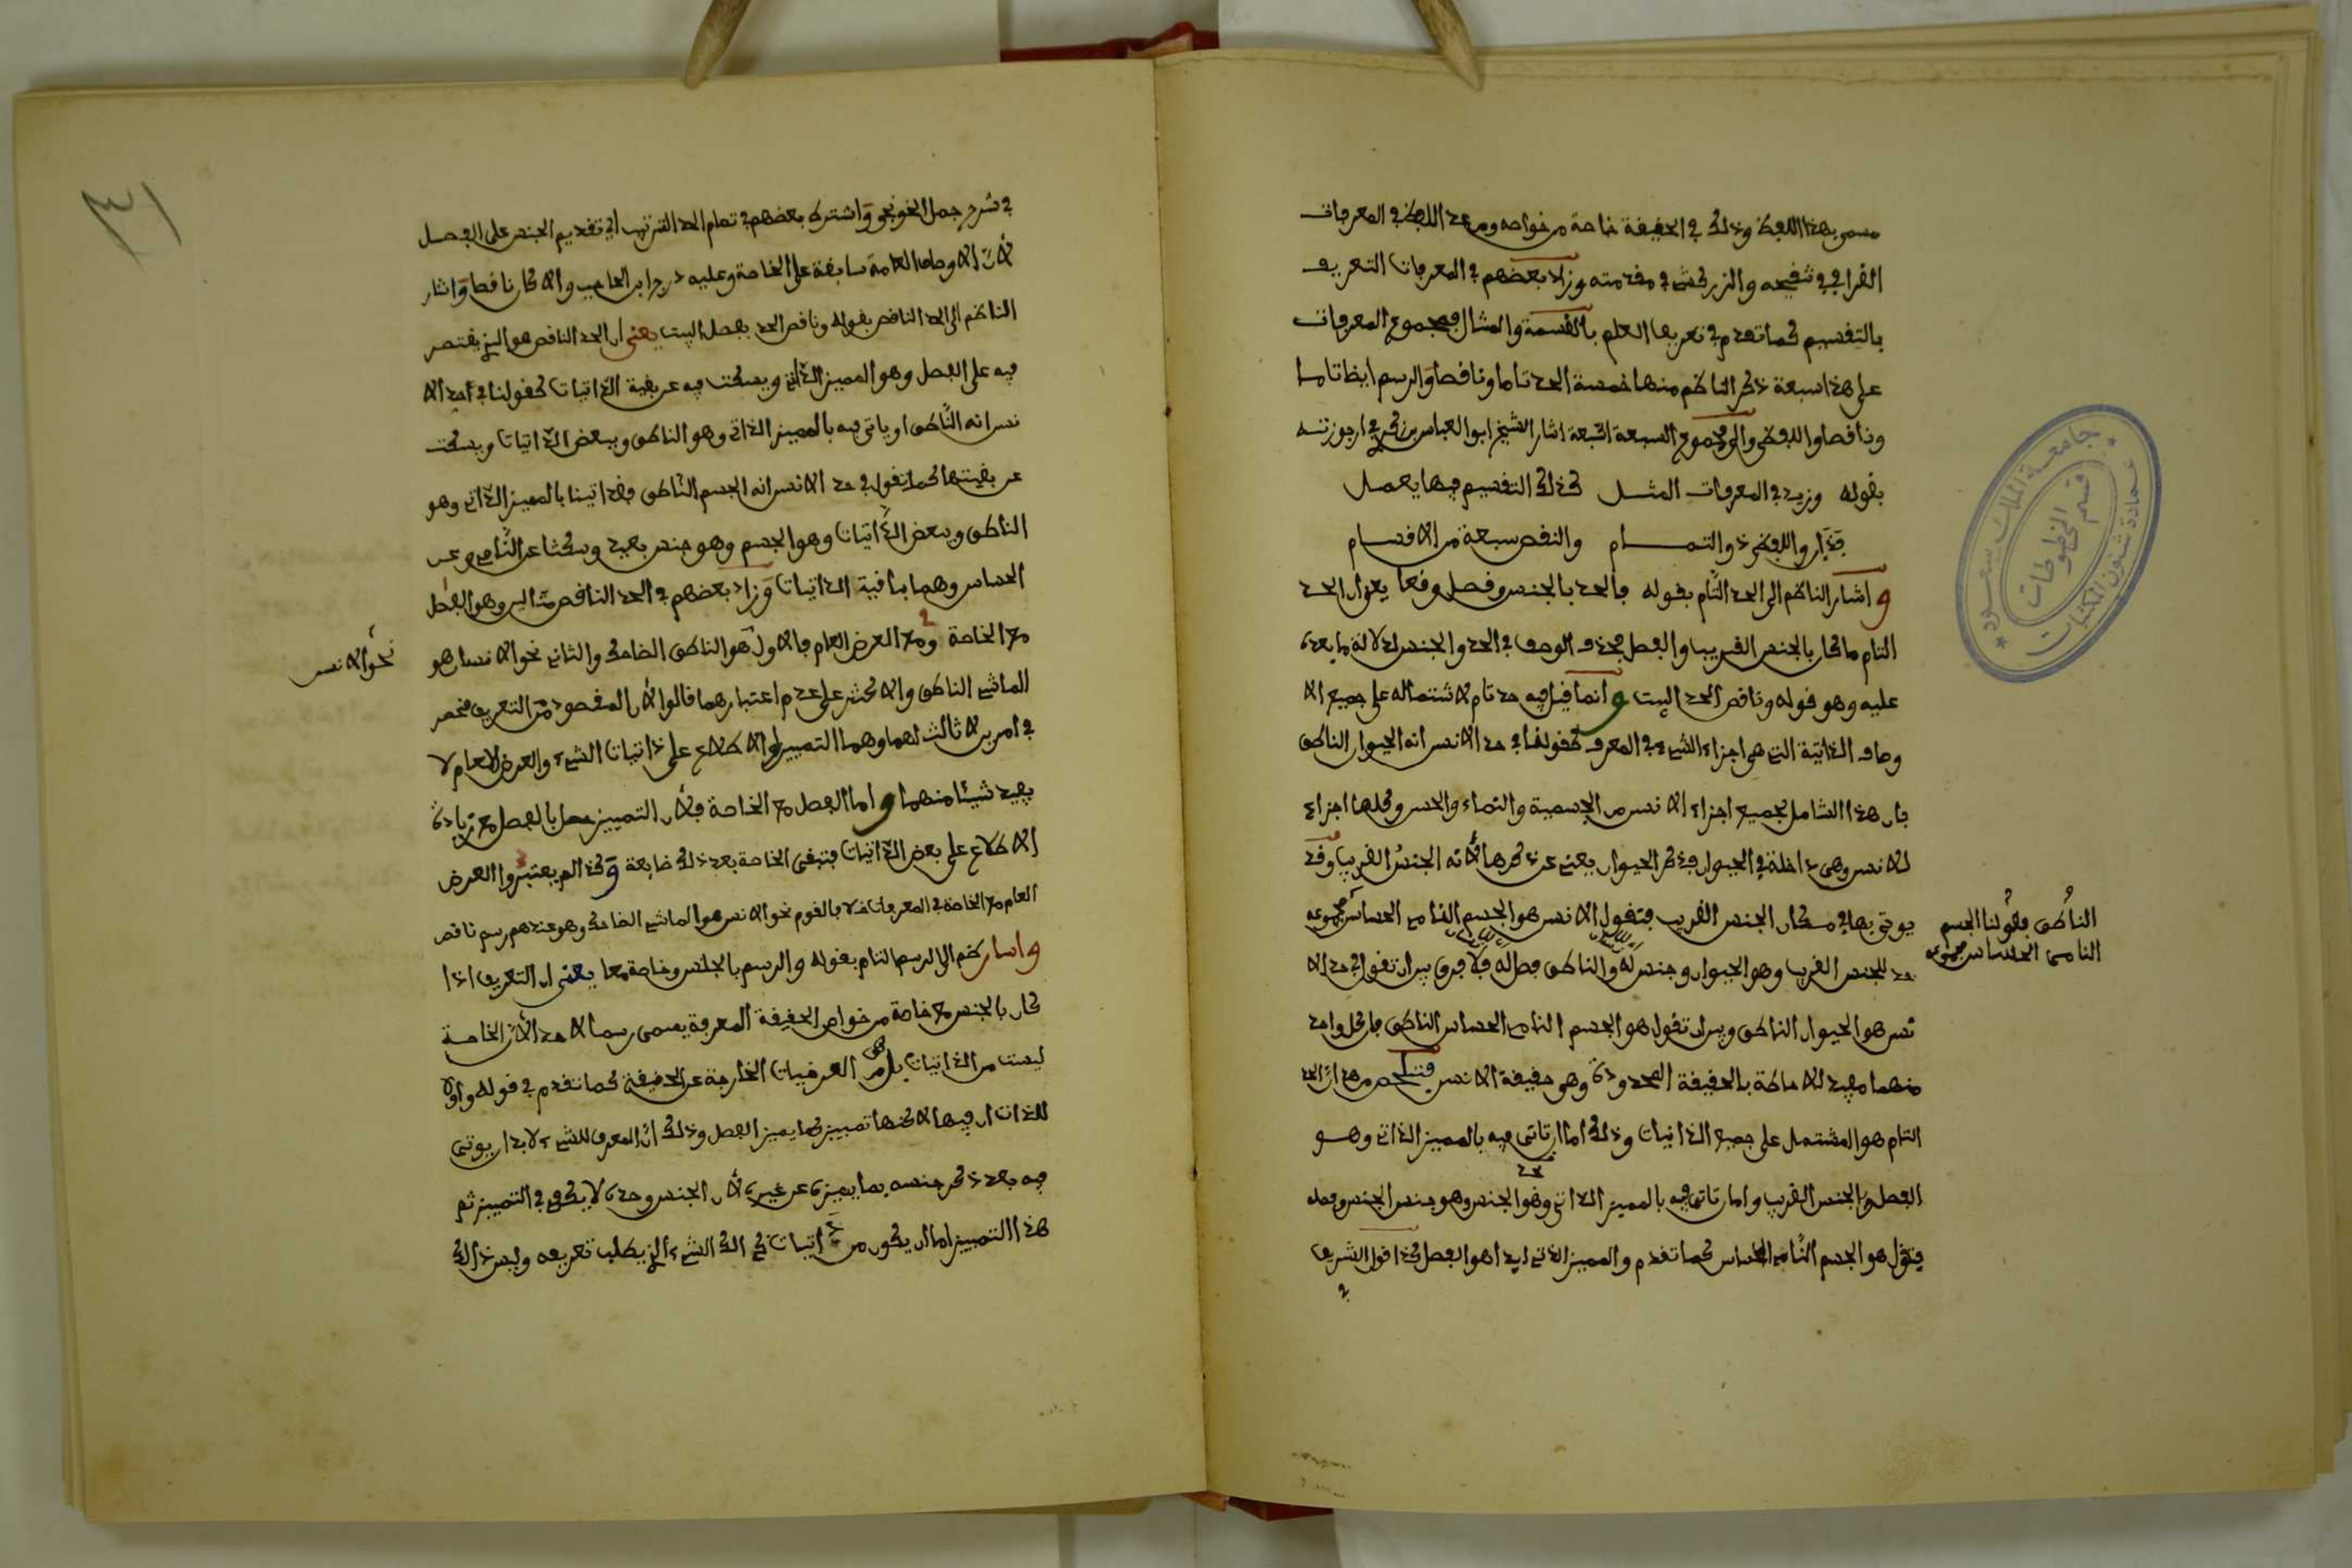 مسمى بهذا اللفظ وذلك في الحقيقة خاصة من خواصه وممن عد اللفظي في المعرفات
القرافي في تنقيحه والزركشي في مقدمته وزاد بعضهم في المعرفات التعريف
بالتقسيم كما تقدم في تعريف العلم بالقسمة والمثال فمجموع المعرفات
على هذا سبعة ذكر الناظم منها خمسة الحد تاما وناقصا والرسم ايضا تاما
وناقصا واللفظي والى مجموع السبعة اشار الشيخ ابو العباس بن في ارجوزته
بقوله وزيد في المعرفات المثل كذلك التقسيم فيها يعمل
واللفظي ذو التمام والنقص سبعة من الاقسام
واشار الناظم الى الحد التام بقوله فالحد بالجنس وفصل وقعا يعني ان الحد
التام ما كان بالجنس القريب والفصل فحذف الوصف في الحد والجنس لدلالة ما بعده
عليه وهو قوله وناقص الحد البيت وانما قيل فيه حد تام لاشتماله على جميع الا
وصاف الذاتية التي هي اجزاء الشيء المعرف كقولنا في حد الانس انه الحيوان الناطق
فان هذا الشامل لجميع اجزاء الانس من الجسمية والنماء والحس وكلها اجزاء
للانس وهي داخلة في الحيوان فذكر الحيوان يغني عن ذكرها لانه الجنس القريب وقد
يوتى بها في مكان الجنس القريب فتقول الانس هو الجسم النامي الحساس مجموعه
الناطق فقولنا الجسم
النامي الحساس مجموعه
حد للجنس القريب وهو الحيوان وجنس له والناطق فصل له فلا فرق بين ان تقول في حد الا
نس هو الحيوان الناطق وبين ان تقول هو الجسم النامي الحساس الناطق فان كل واحد
منهما مفيد للاحاطة بالحقيقة المحدودة وهو حقيقة الانس فتلخص من هذا ان الحد
التام هو المشتمل على جميع الذاتيات وذلك اما ان تاتي فيه بالمميز الذاتي وهو
الفصل وبالجنس القريب واما ان تاتي فيه بالمميز الذاتي وهو الجنس وهو جنس الجنس وفصله
فتقول هو الجسم النامي الحساس كما تقدم والمميز الذاتي ابدا هو الفصل كذا قول الشريف
في
٣١
في شرح جمل الخونجي واشترط بعضهم في تمام الحد الترتيب اي تقديم الجنس على الفصل
لان الاوصاف العامة سابقة على الخاصة وعليه درج ابن الحاجب والا كان ناقصا واشار
الناظم الى الحد الناقص بقوله وناقص الحد بفصل البيت يعني ان الحد الناقص هو الذي يقتصر
فيه على الفصل وهو المميز الذاتي ويسكت فيه عن بقية الذاتيات كقولنا في حد الا
نس انه الناطق او ياتي فيه بالمميز الذاتي وهو الناطق وببعض الذاتيات ويسكت
عن بقيتها كما تقول في حد الانس انه الجسم الناطق فقد اتينا بالمميز الذاتي وهو
الناطق وببعض الذاتيات وهو الجسم وهو جنس بعيد وسكتنا عن النامي وعن
الحساس وهما باقية الذاتيات وزاد بعضهم في الحد الناقص وهو الفصل
مع الخاصة ومع العرض العام فالاول هو الناطق الضاحك والثاني نحو الانسان هو
نحو الانس
الماشي الناطق والاكثر على عدم اعتبارهما قالوا لان المقصود من التعريف منحصر
في امرين لا ثالث لهما وهما التمييز او الاطلاع على ذاتيات الشيء والعرض العام لا
يفيد شيئا منهما واما الفصل مع الخاصة فلان التمييز حصل بالفصل مع زيادة
الاطلاع على بعض الذاتيات فتبقى الخاصة بعد ذلك ضايعة وكذا لم يعتبروا العرض
العام مع الخاصة في المعرفات خلافا لقوم نحو الانس هو الماشي الضاحك وهو عندهم رسم ناقص
واشار الى الرسم التام بقوله والرسم بالجنس وخاصة معا يعني ان التعريف اذا
كان بالجنس مع خاصة من خواص الحقيقة المعرفة يسمى رسما لا حدا لان الخاصة
ليست من الذاتيات بل هي من العرضيات الخارجة عن الحقيقة كما تقدم في قوله واولا
للذات ان فيها الا كنها تمييز كما يميز الفصل وذلك ان المعرف للشيء لا بد ان يوتى
فيه بعد ذكر جنسه بما يميزه عن غيره لان الجنس وحده لا يكفي في التمييز ثم
هذا التمييز اما ان يكون من ذاتيات ذلك الشيء الذي يطلب تعريفه وليس ذلك
جامعة الملك سعود
عمادة شئون المكتبات
قسم المخطوطات